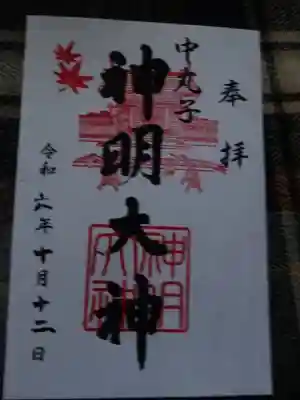 奉拝
中丸子
神明大神
神明大神
令和六年十月十二日